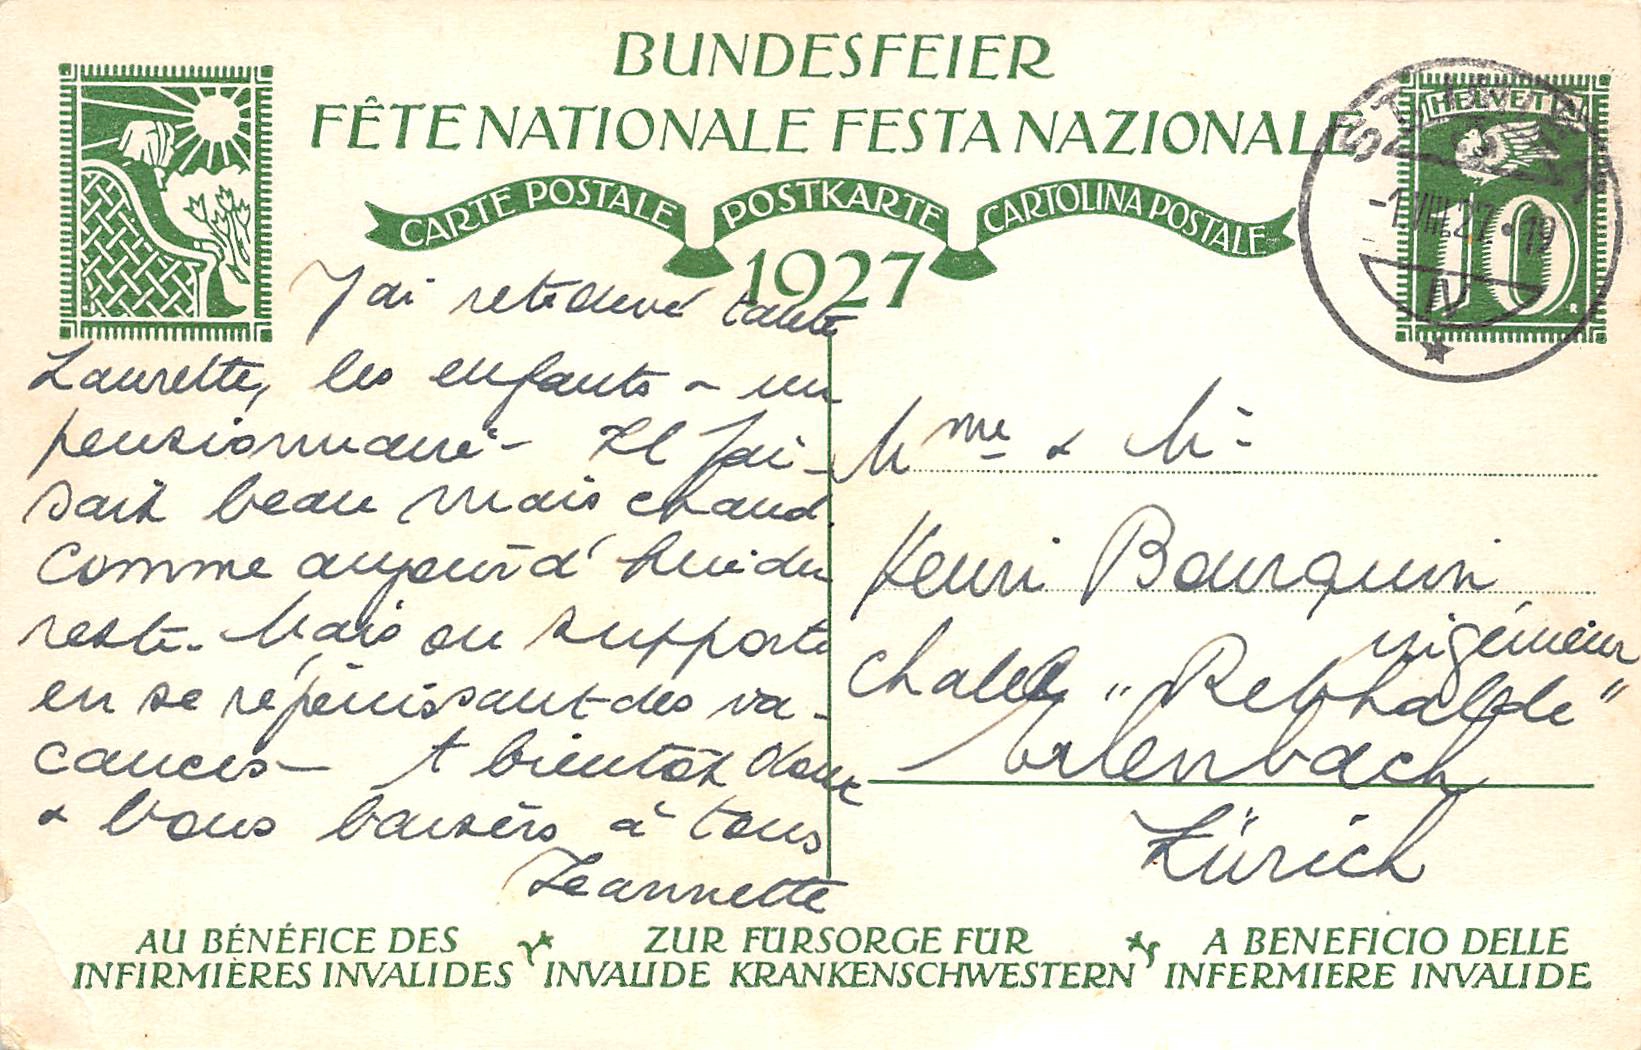 BUNDESFEIER
FÊTE NATIONALE FESTA NAZIONALE
CARTE POSTALE POSTKARTE CARTOLINA POSTALE
1927
HELVETIA
10
-1.VIII.27.19
IV
J'ai retrouvé tante
Laurette, les enfants - un
pensionnaire - Il fai-
sait beau mais chaud
comme aujourd'hui du
reste. Mais on supporte
en se réjouissant des va-
cances - A bientôt donc
& bons baisers à tous
Jeannette
Mme & Mr
Henri Bourquin
ingénieur
chalet "Rebhalde"
Erlenbach
Zürich
AU BÉNÉFICE DES
INFIRMIÈRES INVALIDES
ZUR FÜRSORGE FÜR
INVALIDE KRANKENSCHWESTERN
A BENEFICIO DELLE
INFERMIERE INVALIDE